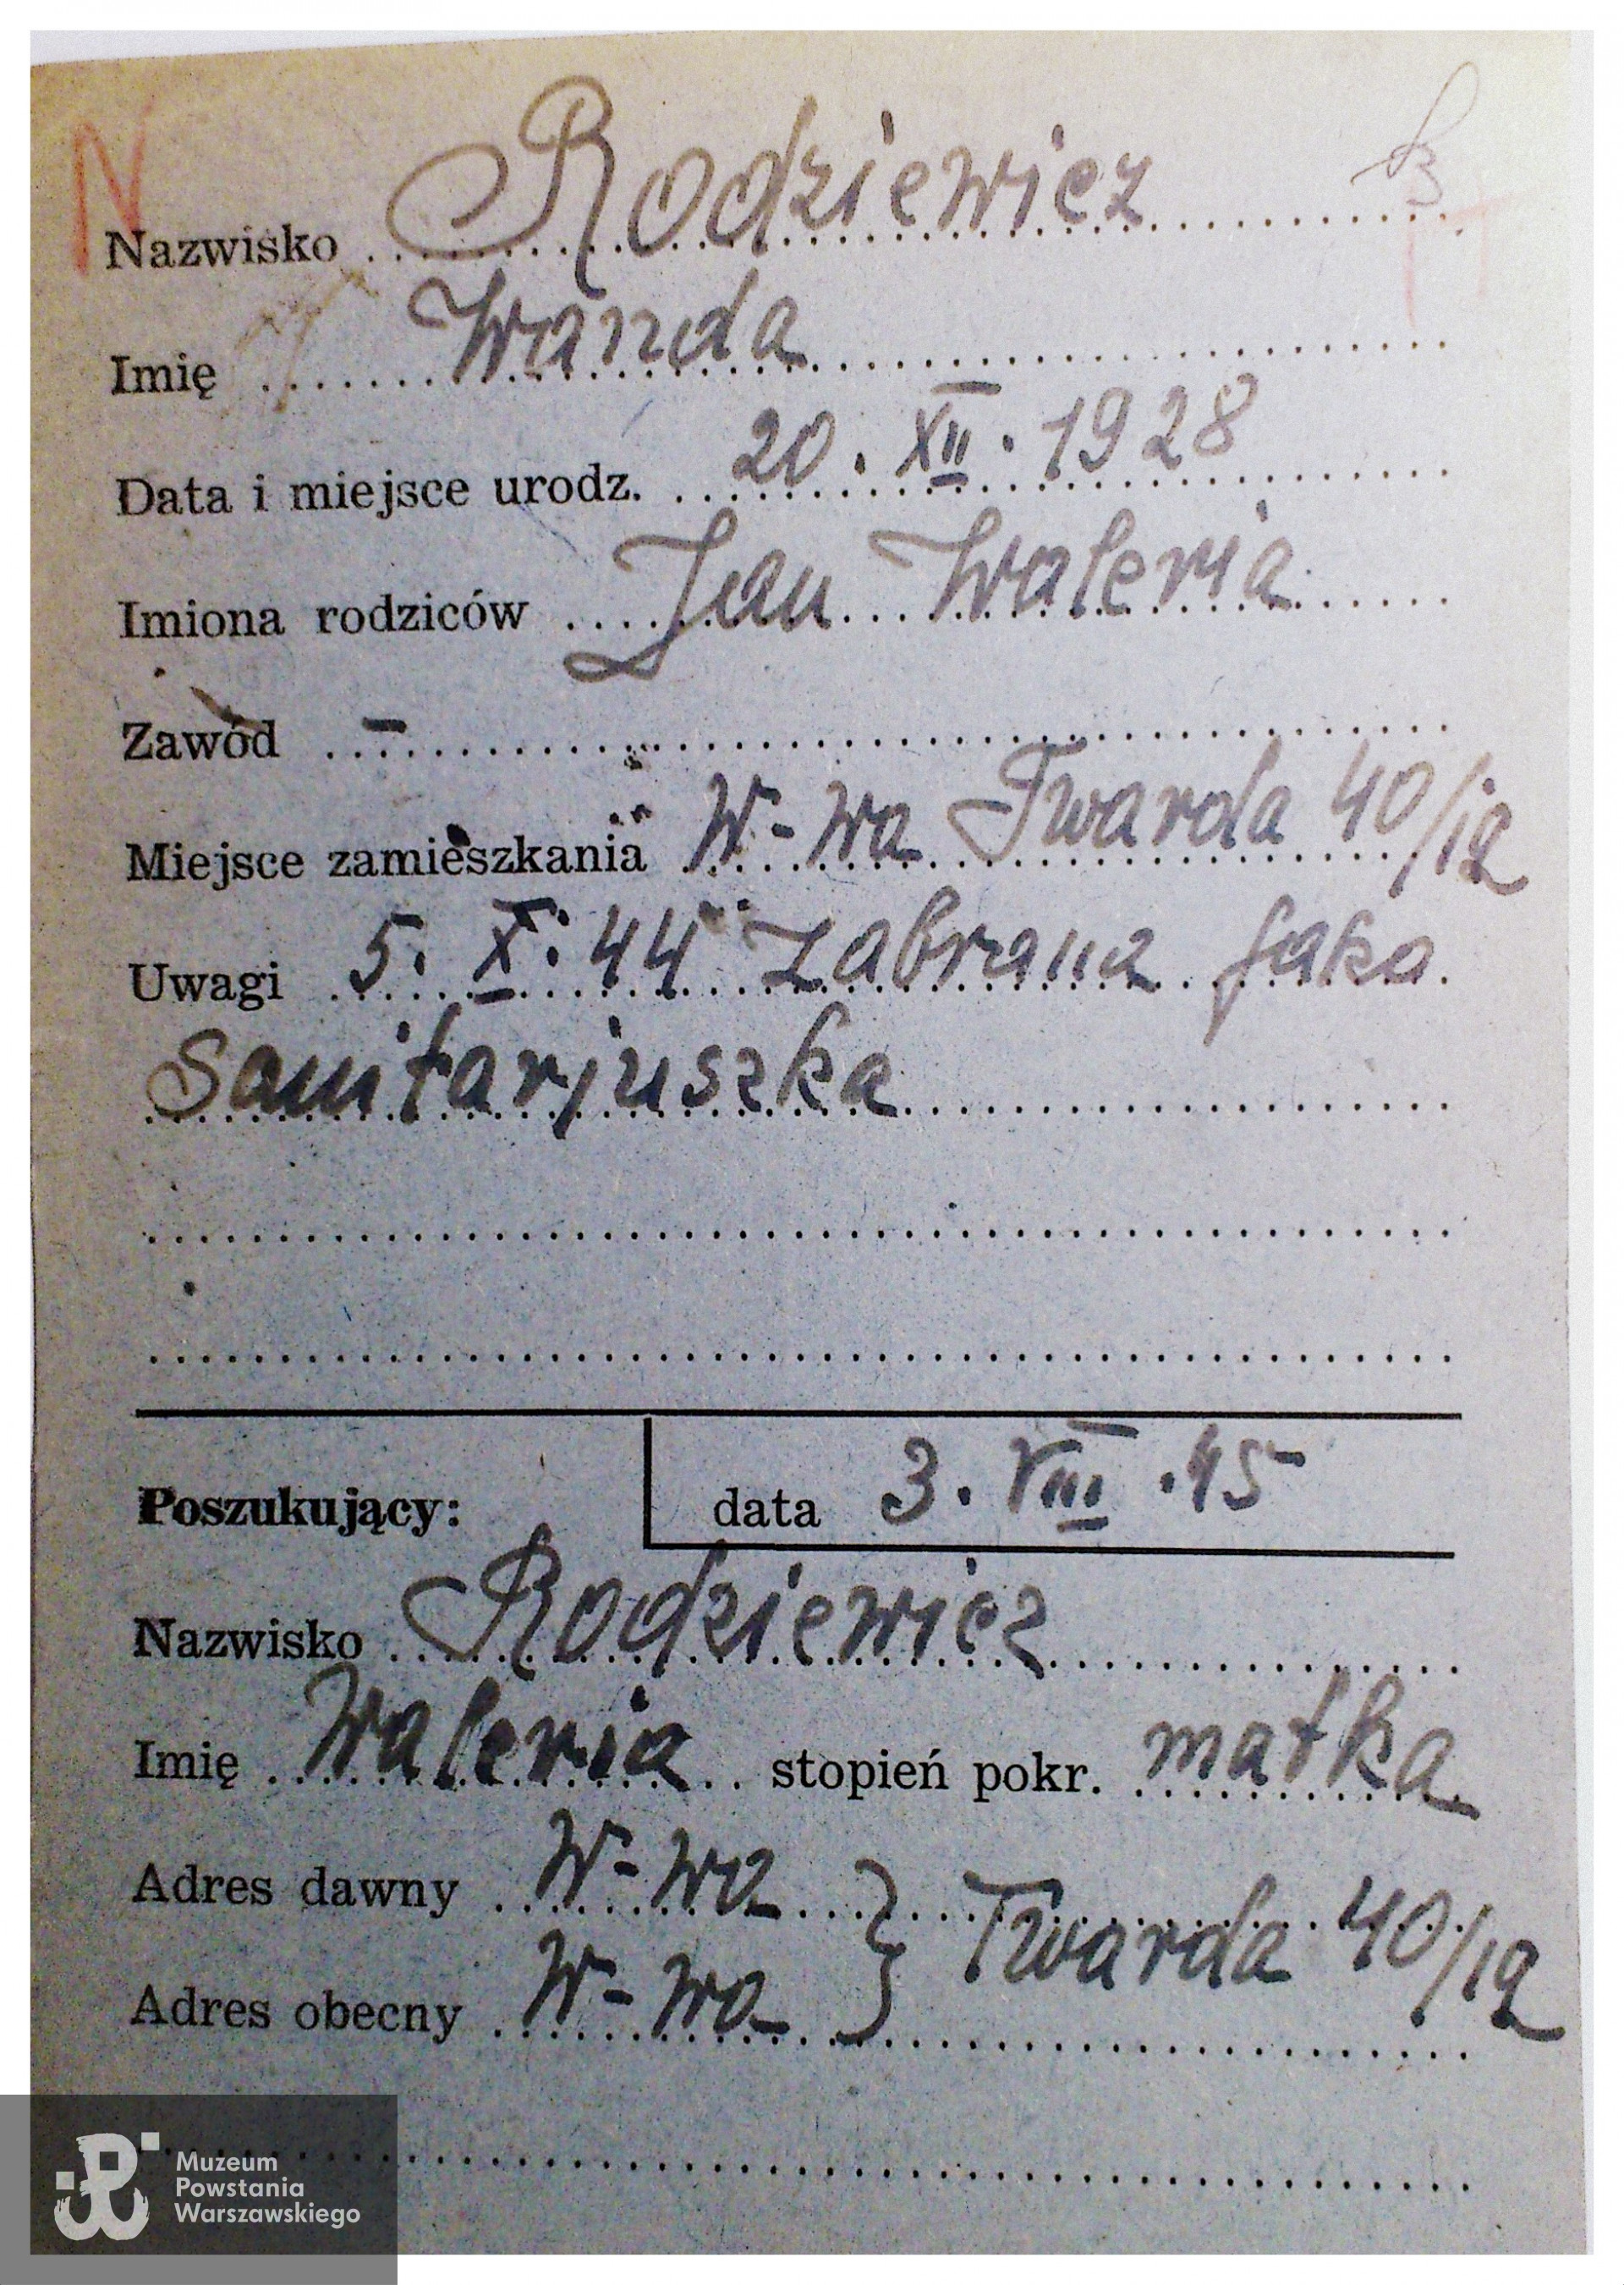 N
Nazwisko Rodziewicz
Imię Wanda
Data i miejsce urodz. 20. XII. 1928
Imiona rodziców Jan Waleria
Zawód –
Miejsce zamieszkania W-wa Twarda 40/12
Uwagi 5. X. 44 zabrana jako
Sanitarjuszka
Poszukujący: data 3. VIII. 45
Nazwisko Rodziewicz
Imię Waleria stopień pokr. matka
Adres dawny W-wa } Twarda 40/12
Adres obecny W-wa
Muzeum
Powstania
Warszawskiego